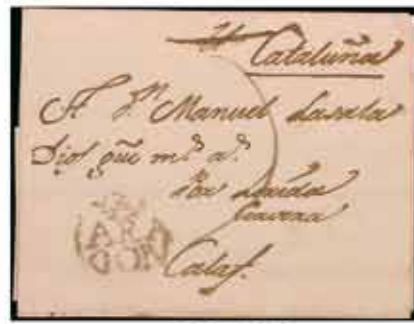 Cataluña
A Dn Manuel Lasala
Dios que ms as
Por Lérida
Cervera
ARA
GON
Calaf.